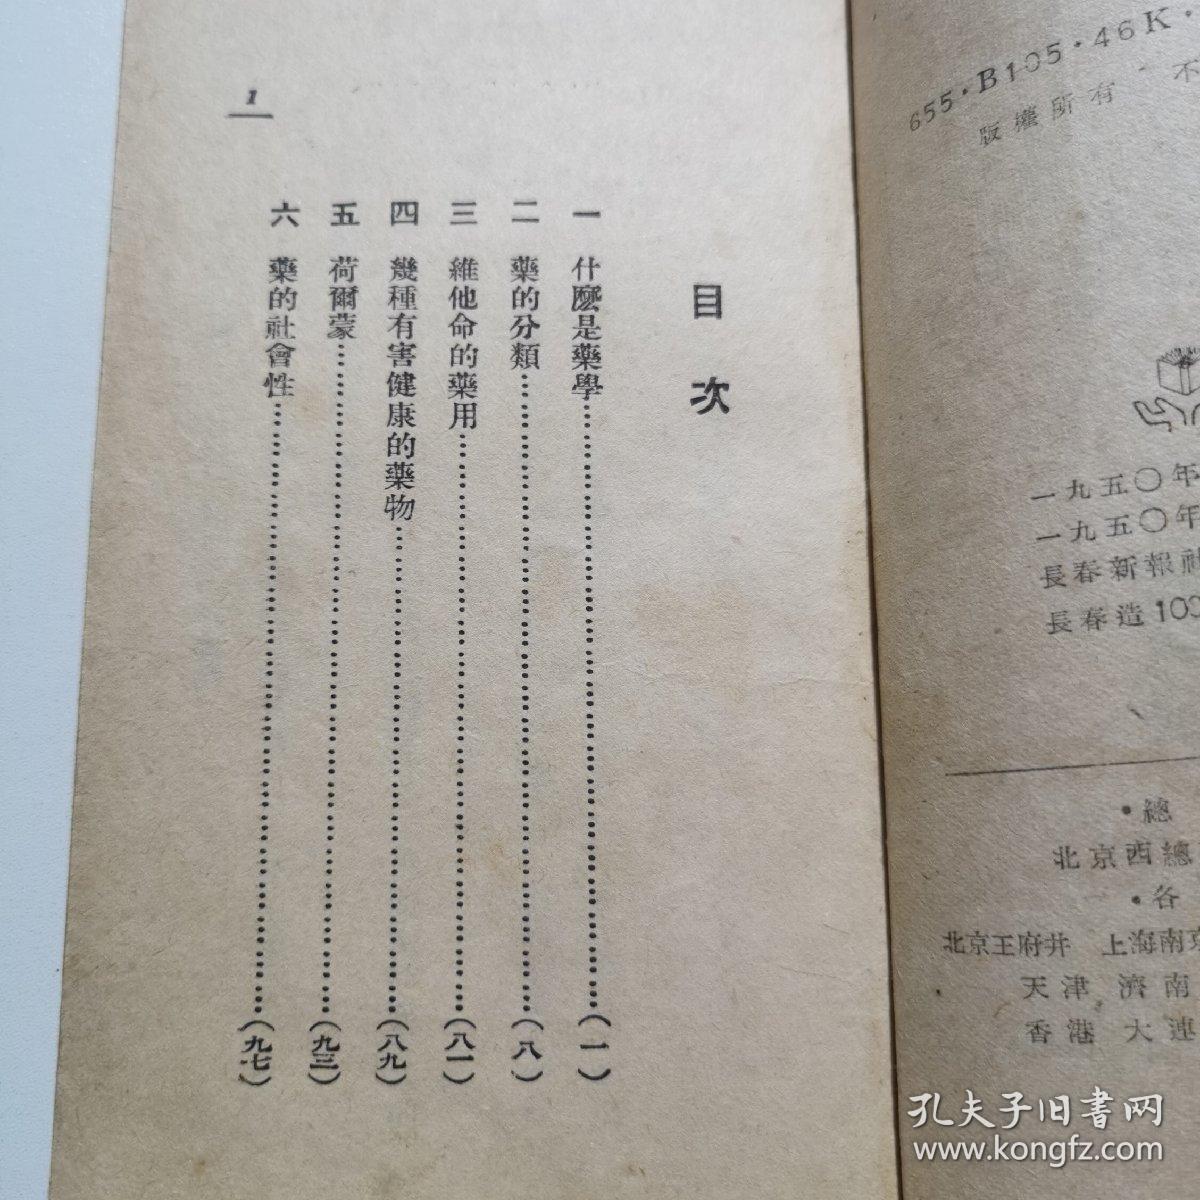 655·B105·46K·
版權所有 不
一九五〇年
一九五〇年
長春新報社
長春造100
·總
北京西總
·各
北京王府井 上海南京
天津 濟南
香港 大連
目次
一 什麼是藥學……(一)
二 藥的分類……(八)
三 維他命的藥用……(八一)
四 幾種有害健康的藥物……(八九)
五 荷爾蒙……(九三)
六 藥的社會性……(九七)
1
孔夫子旧书网
www.kongfz.com